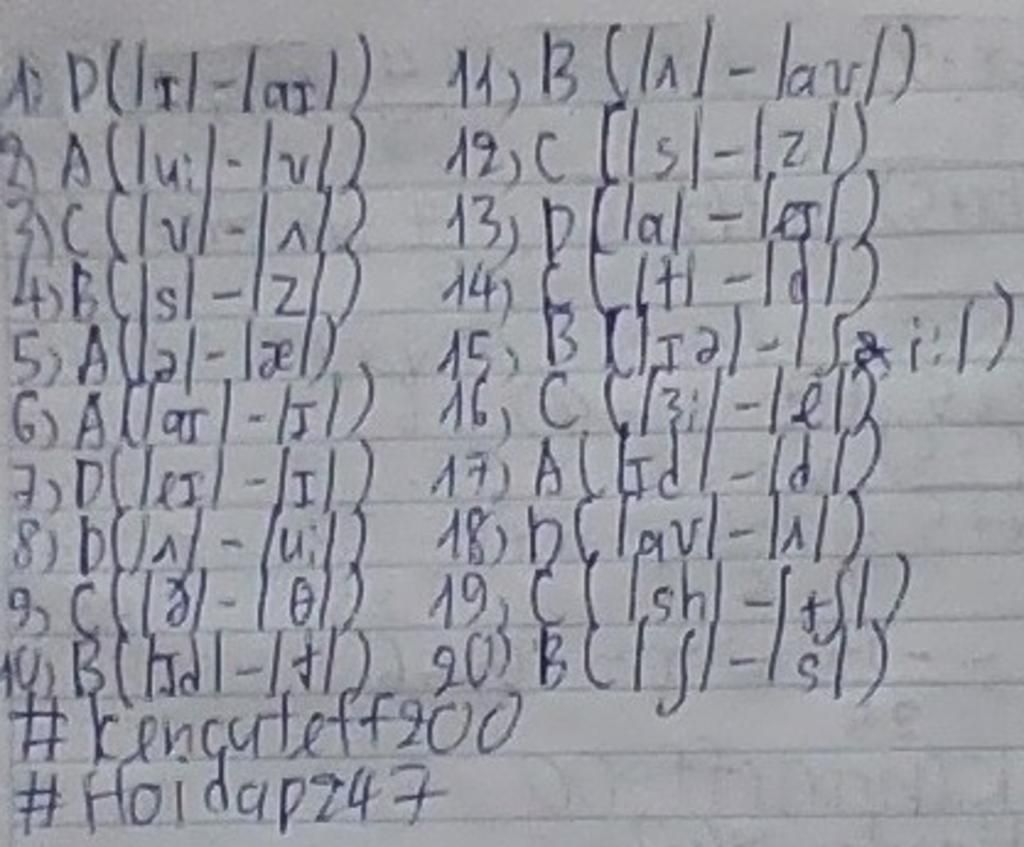 1, D(|ɪ|-|aɪ|) 11, B (|ʌ| - |aʊ|)
2, A(|u:|-|ʊ|) 12, C (|s| - |z|)
3, C(|ʊ| - |ʌ|) 13, D(|a| - |eɪ|)
4, B(|s| - |z|) 14, C (|t| - |d|)
5, A(|ə| - |æ|) 15, B (|ɪə| - | i:|)
6, A(|aɪ| - |ɪ|) 16, C (|ɜ:| - |e|)
7, D(|eɪ| - |ɪ|) 17, A(|ɪd| - |d|)
8, D(|ʌ| - |u:|) 18, D(|aʊ| - |ʌ|)
9, C(|ð| - |θ|) 19, C (|sh| - |tʃ|)
10, B(|ɪd| - |t|) 20) B(|ʃ| - |s|)
#kencuteff200
#Hoidap247